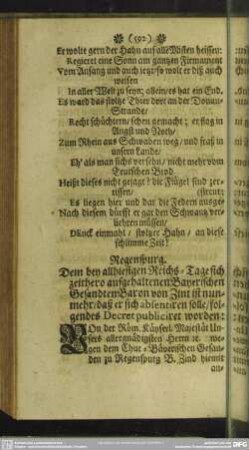 (592)
Er wolte gern der Hahn auf alle Misten heissen:
Regieret eine Sonn am gantzen Firmament
Vom Anfang und auch jetz/so wolt er diß auch
weisen
In aller Welt zu seyn; allein/es hat ein End.
Es ward das stoltze Thier dort an der Donau-
Strande/
Recht schüchtern/ schon gemacht; er flog in
Angst und Noth/
Zum Rhein aus Schwaben weg/ und fraß in
unsern Lande/
Eh' als man sichs versehn/ nicht mehr vom
Teutschen Brod
Heißt dieses nicht gejagt? die Flügel sind zer-
rissen/ (streut;
Es liegen hier und dar die Federn ausge-
Nach diesem dürfft er gar den Schwantz ver-
liehren müssen/
Dünck einmahl/ stoltzer Hahn/ an diese
schlimme Zeit!
Regenspurg.
Dem bey allhiesigen Reichs-Tage sich
zeithero aufgehaltenen Bayerischen
Gesandtem Baron von Zint ist nun-
mehr/daß er sich abienaren solle/fol-
gendes Decret publiciret worden:
VOn der Röm. Käyserl. Majestät Un-
sers allergnädigsten Herrn ꝛc. we-
gen dem Chur-Bäyerischen Gesan-
den zu Regenspurg B. Zind hiemit
an: